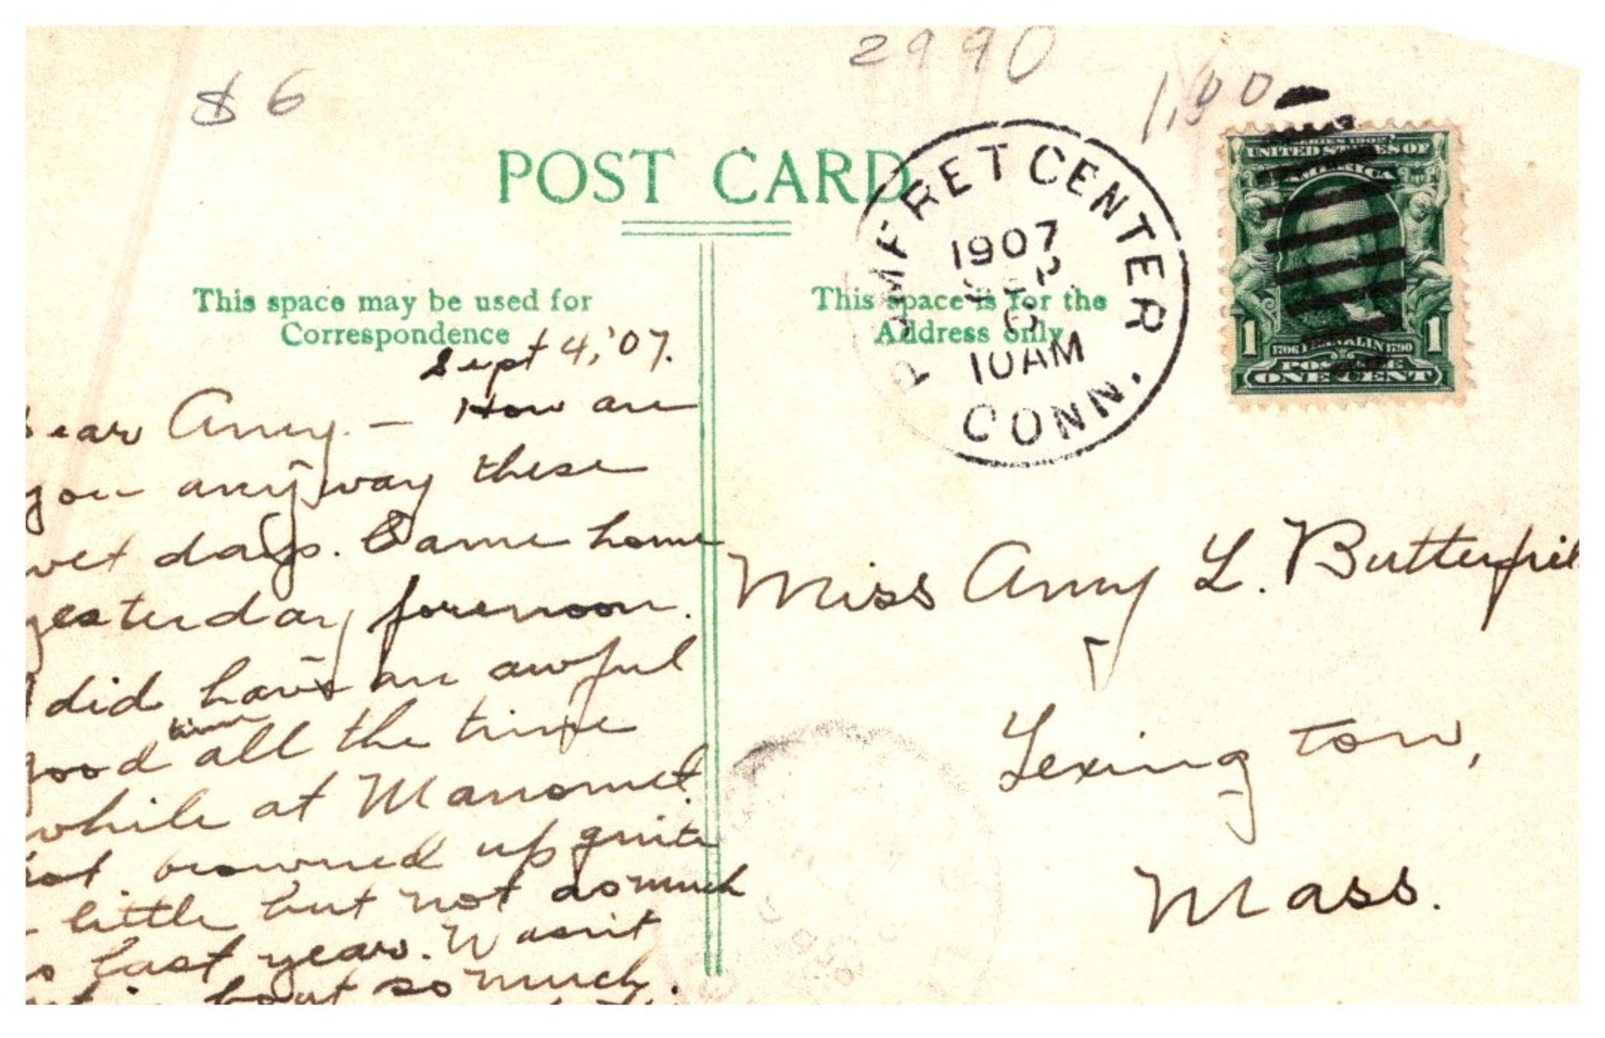 2990
$6
1.00
POST CARD
POMFRET CENTER
CONN.
1907
SEP
10AM
SERIES 1902
UNITED STATES OF
AMERICA
1706 FRANKLIN 1790
1 POSTAGE 1
ONE CENT
This space may be used for
Correspondence
This space is for the
Address only
Sept 4, '07.
Dear Amy. — How are
you anyway these
wet days. Came home
yesterday forenoon.
I did have an awful
good time all the time
while at Manomet.
Got browned up quite
a little but not as much
as last year. Wasn't
out in boat so much.
Miss Amy L. Butterfiel
Lexington,
Mass.